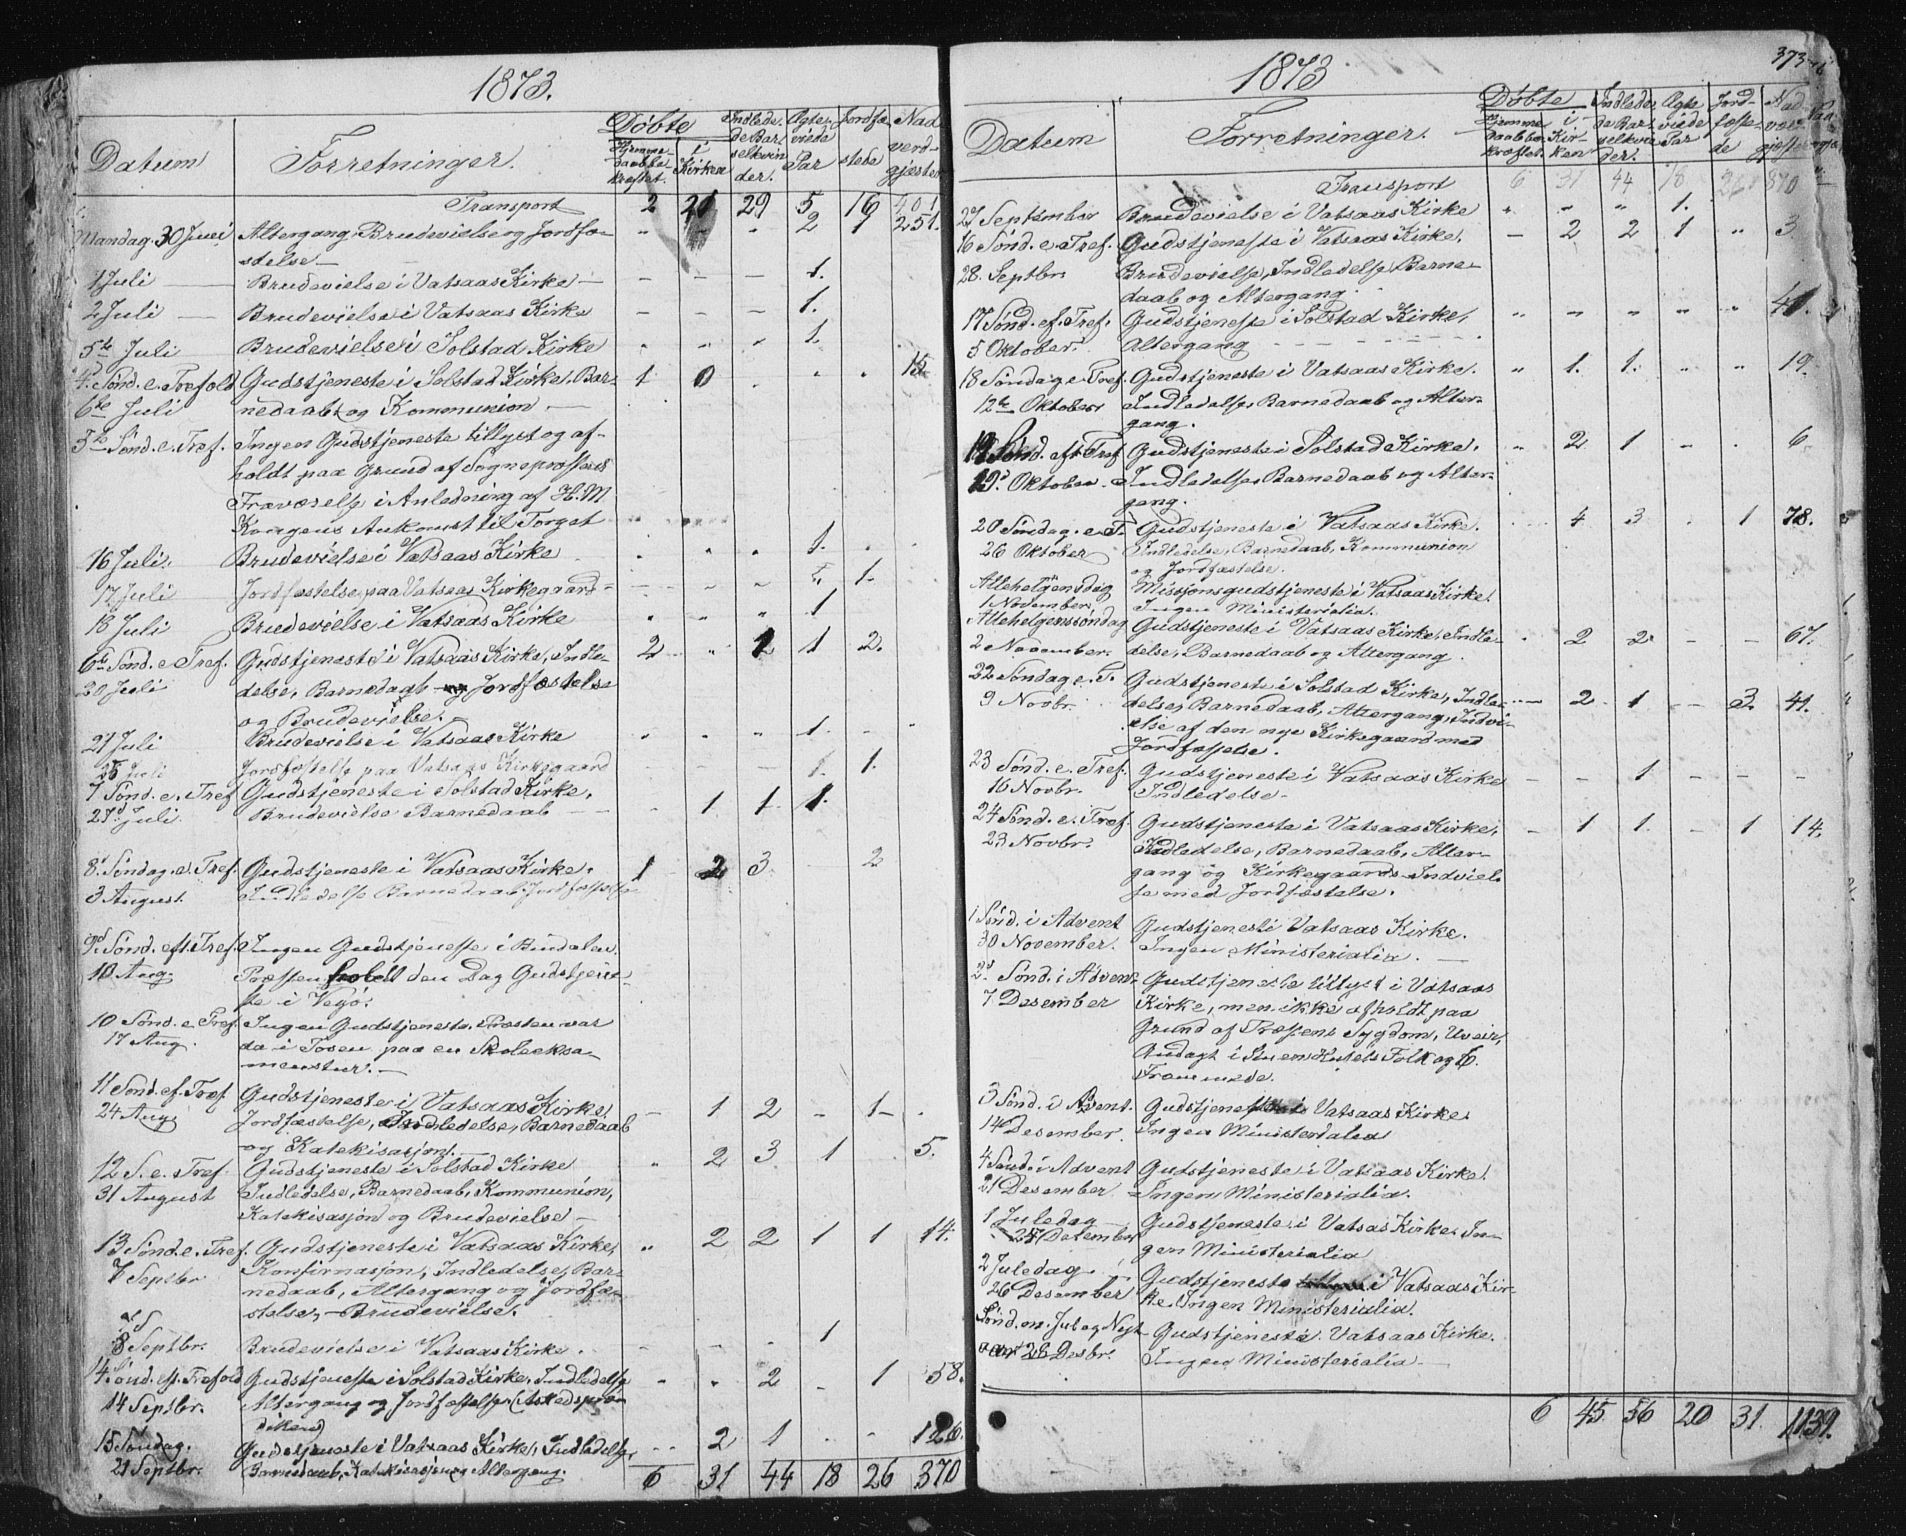 1873.
Datum
Forretninger.
Døbte
Hjemme-
daab be-
kræftet.
i
Kirken
Indlede-
de Bar-
selkvin
der.
Ægte-
viede
Par
Jordfæ-
stede
Nad
verd-
gjæster
Transport 2 21 29 5 16
Mandag 30 Juni Altergang Brudevielse og Jordfæ- - - - 2 1 251.
stelse
1 Juli Brudevielse i Vatsaas Kirke - - - 1.
2 Juli Brudevielse i Vatsaas Kirke - - - 1.
5te Juli Brudevielse i Solstad Kirke 1.
4. Sønd. e. Trefold Gudstjeneste i Solstad Kirke. Bar- 1 0 15
6te Juli nedaab og Kommunion.
5te Sønd. e. Tref. Ingen Gudstjeneste tillyst og af-
holdt paa Grund af Sognepræstens
Fraværelse i Anledning af H. M.
Kongens Ankomst til Torget
16 Juli. Brudevielse i Vatsaas Kirke 1.
17 Juli Jordfæstelse paa Vatsaas Kirkegaard 1.
18 Juli Brudevielse i Vatsaas Kirke 1
6te Sønd. e Tref. Gudstjeneste i Vatsaas Kirke, Indle- 2 " 2 1 2.
20 Juli delse, Barnedaab og Jordfæstelse
og Brudevielse.
21 Juli Brudevielse i Vatsaas Kirke 1.
25 Juli Jordfæstelse paa Vatsaas Kirkegaard - - - 1.
7 Sønd. e. Tref Gudstjeneste i Solstad Kirke, 1 1 1.
27 Juli Brudevielse Barnedaab
8. Søndag. e. Tref. Gudstjeneste i Vatsaas Kirke. 1 2 3 2
3 August Indledelse Barnedaab Jordfæstelse
9d Sønd. eft. Tref. Ingen Gudstjeneste i Bindalen.
10 Aug. Præsten holdt den Dag Gudstjene-
ste i Vegø.
10 Sønd. e Tref. Ingen Gudstjeneste. Præsten var
17 Aug. da i Tosen paa en Skoleeksa-
menstur.
11 Sønd. ef. Tref. Gudstjeneste i Vatsaas Kirke. - 1 2 - 1 -
24 Aug Jordfæstelse, Indledelse, Barnedaab
og Katekisasjon.
12 S. e. Tref. Gudstjeneste i Solstad Kirke " 2 3 1 5.
31 August Indledelse, Barnedaab, Kommunion,
Katekisasjon og Brudevielse
13 Sønd. e. Tref. Gudstjeneste i Vatsaas Kirke, " 2 2 1 1 14.
7 Septbr Konfirmasjon, Indledelse, Bar-
nedaab, Altergang og Jordfæ-
stelse, Brudevielse.
8 Septbr. Brudevielse i Vatsaas Kirke. 1
14 Sønd. eft. Trefold Gudstjeneste i Solstad Kirke, Indledelse - " 2 - 1 58.
14 Septbr. Altergang og Jordfæstelse (Afskedspræ-
diken)
15 Søndag. Gudstjeneste i Vatsaas Kirke, Indledelse, 2 1 126.
21 Septbr. Barnedaab, Katekisasjon og Altergang.
6 31 44 18 26 370
1873
373
Datum
Forretninger.
Døbte
Hjemme
daab be-
kræftet.
i
Kir-
ken
Indlede
de Bar-
selkvin
der.
Ægte
viede
Par
Jord-
fæste-
de
Nad
Transport 6 31 44 18 26 870
27 September Brudevielse i Vatsaas Kirke " " " 1.
16 Sønd. e. Tref. Gudstjeneste i Vatsaas Kirke, - 2 2 1 " 3
28. Septbr Brudevielse, Indledelse, Barne-
daab og Altergang
17 Sønd. ef. Tref. Gudstjeneste i Solstad Kirke, 41.
5 Oktober. Altergang
18 Søndag e. Tref. Gudstjeneste i Vatsaas Kirke. " 1. 1. " " 19.
12te Oktober Indledelse, Barnedaab og Alter-
gang.
19 Sønd. eft Tref Gudstjeneste i Solstad Kirke, " 2 1 - 6
19 Oktober Indledelse, Barnedaab og Alter-
gang.
20 Søndag. e. T. Gudstjeneste i Vatsaas Kirke. 4 3 1 78.
26 Oktober Indledelse, Barnedaab, Kommunion
og Jordfæstelse.
Allehelgensdag Missjonsgudstjeneste i Vatsaas Kirke.
1 November Ingen Ministerialia.
Allehelgenssøndag Gudstjeneste i Vatsaas Kirke, Indle- 2 2 - - 67.
2 November. delse, Barnedaab og Altergang.
22 Søndag e. T. Gudstjeneste i Solstad Kirke, Indle-
9 Novbr. delse, Barnedaab, Altergang, Indvi- 2 1 - 3 41.
else af den nye Kirkegaard med
Jordfæstelse.
23 Sønd. e. Tref. Gudstjeneste i Vatsaas Kirke - - 1 - - -
16 Novbr. Indledelse.
24 Sønd. e. Tref. Gudstjeneste i Vatsaas Kirke, - 1 1. - 1 14.
23 Novbr. Indledelse, Barnedaab, Alter-
gang og Kirkegaards Indviel-
se med Jordfæstelse.
1 Sønd. i Advent Gudstjeneste i Vatsaas Kirke.
30 November. Ingen Ministerialia.
2d Sønd. i Advent Gudstjeneste tillyst i Vatsaas
7 Desember Kirke, men ikke afholdt paa
Grund af Præstens Sygdom, Uveir,
Andagt i Stuen Husets Folk og 6
Fremmede.
3 Sønd. i Advent. Gudstjeneste i Vatsaas Kirke
14 Desember. Ingen Ministerialia
4 Sønd. i Advent Gudstjeneste i Vatsaas Kirke.
21 Desember Ingen Ministerialia.
1 Juledag Gudstjeneste i Vatsaas Kirke. In-
25 Desember gen Ministerialia
2 Juledag Gudstjeneste i Vatsaas Kir-
26 Desember ke. Ingen Ministerialia.
Sønd. m. Jul og Nyt- Gudstjeneste Vatsaas Kirke.
aar 28 Desbr. Ingen Ministerialia
6 45 56 20 31. 1139.